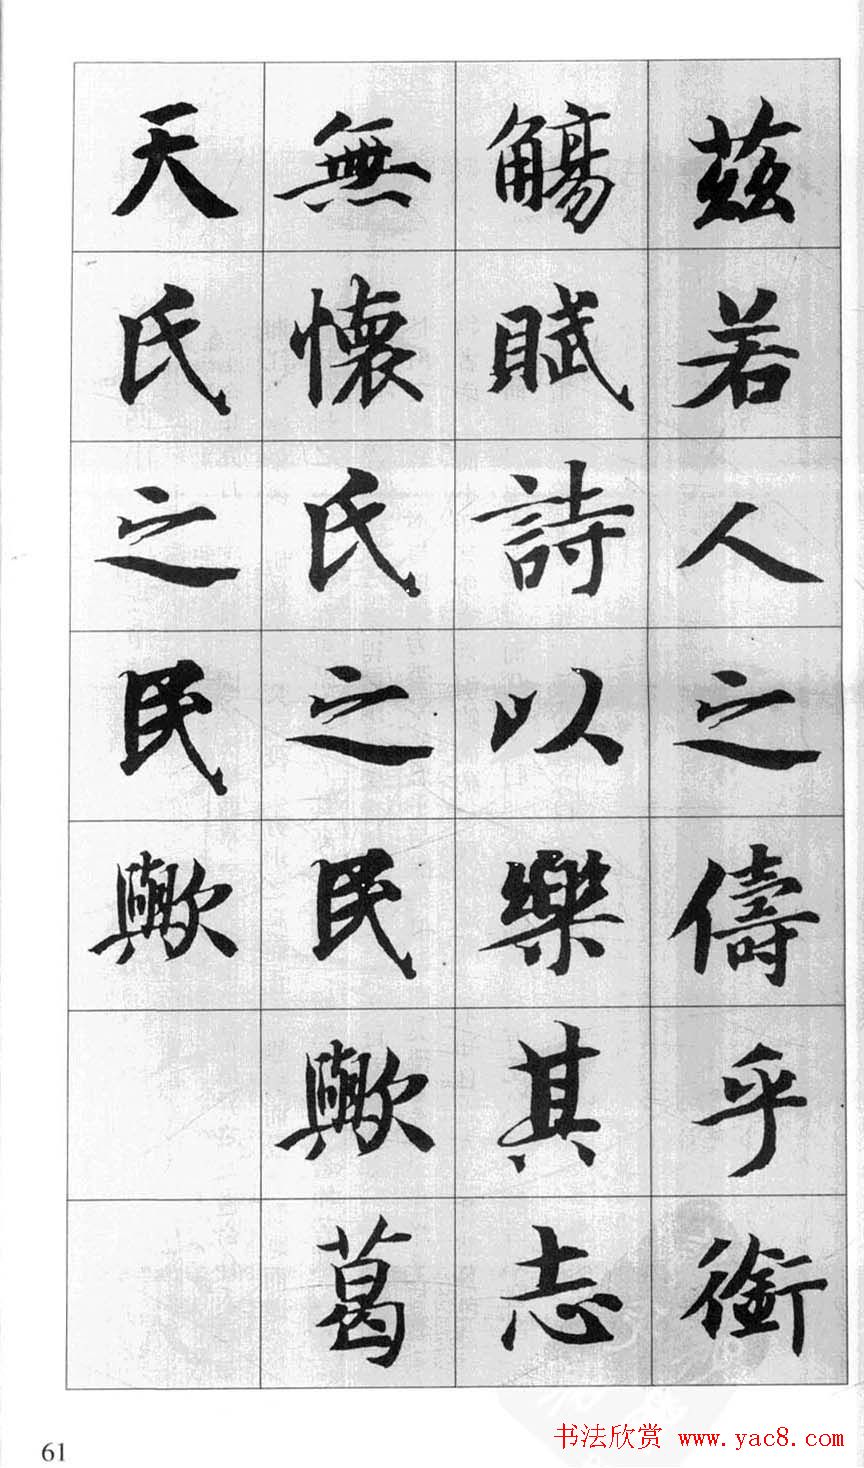 茲若人之儔乎銜
觴賦詩以樂其志
無懷氏之民歟葛
天氏之民歟
61
书法欣赏 www.yac8.com